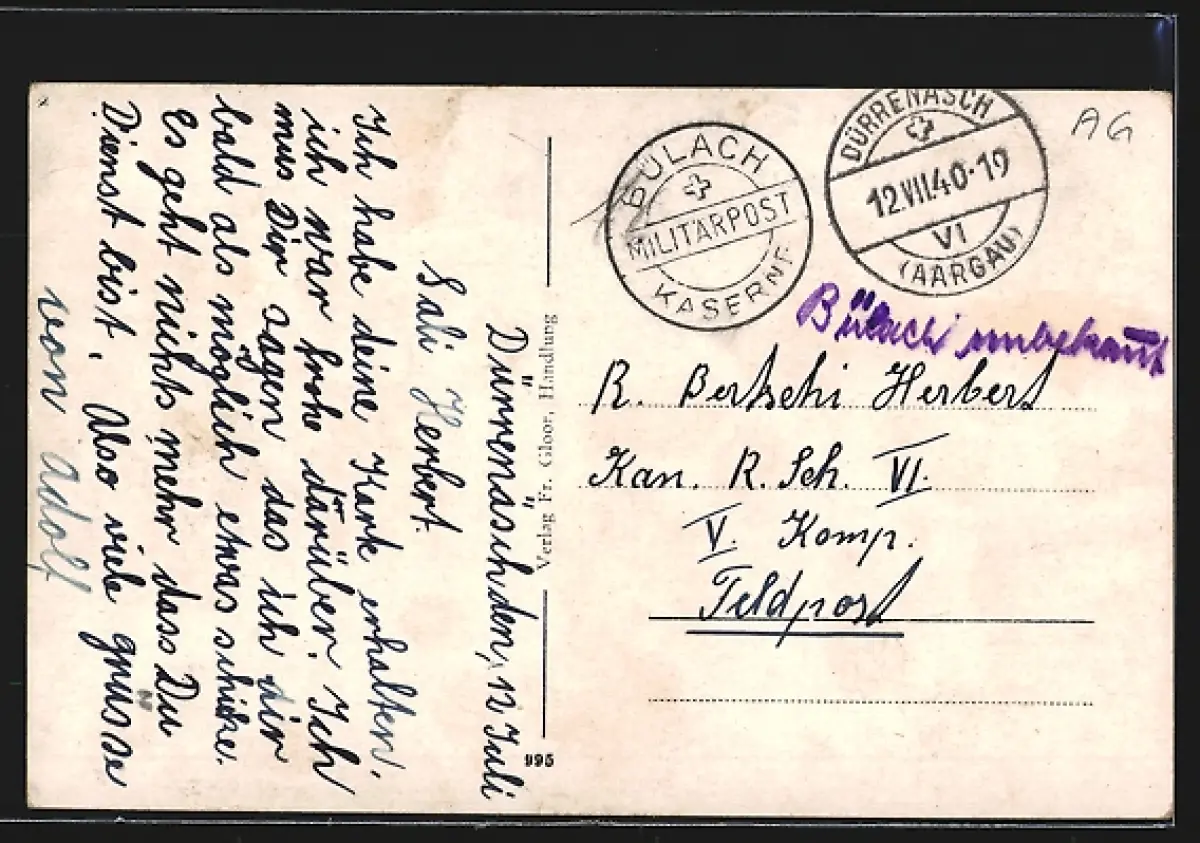 Dürrenäsch den, 12 Juli
Sali Herbert.
Ich habe deine Kark erhalten.
ich war frohe darüber. Ich
mus Dir sagen das ich dir
bald als möglich etwas schike.
Es geht nichts mehr dass Du
Dienst bist. Also viele grüsse
von Adolf
Verlag Fr. Gloor, Handlung
995
BÜLACH
MILITÄRPOST
KASERNE
DÜRRENÄSCH
12.VII.40-19
VI
(AARGAU)
AG
Bülach unbekannt
R. Bertschi Herbert
Kan. R. Sch. VI.
V. Komp.
Feldpost